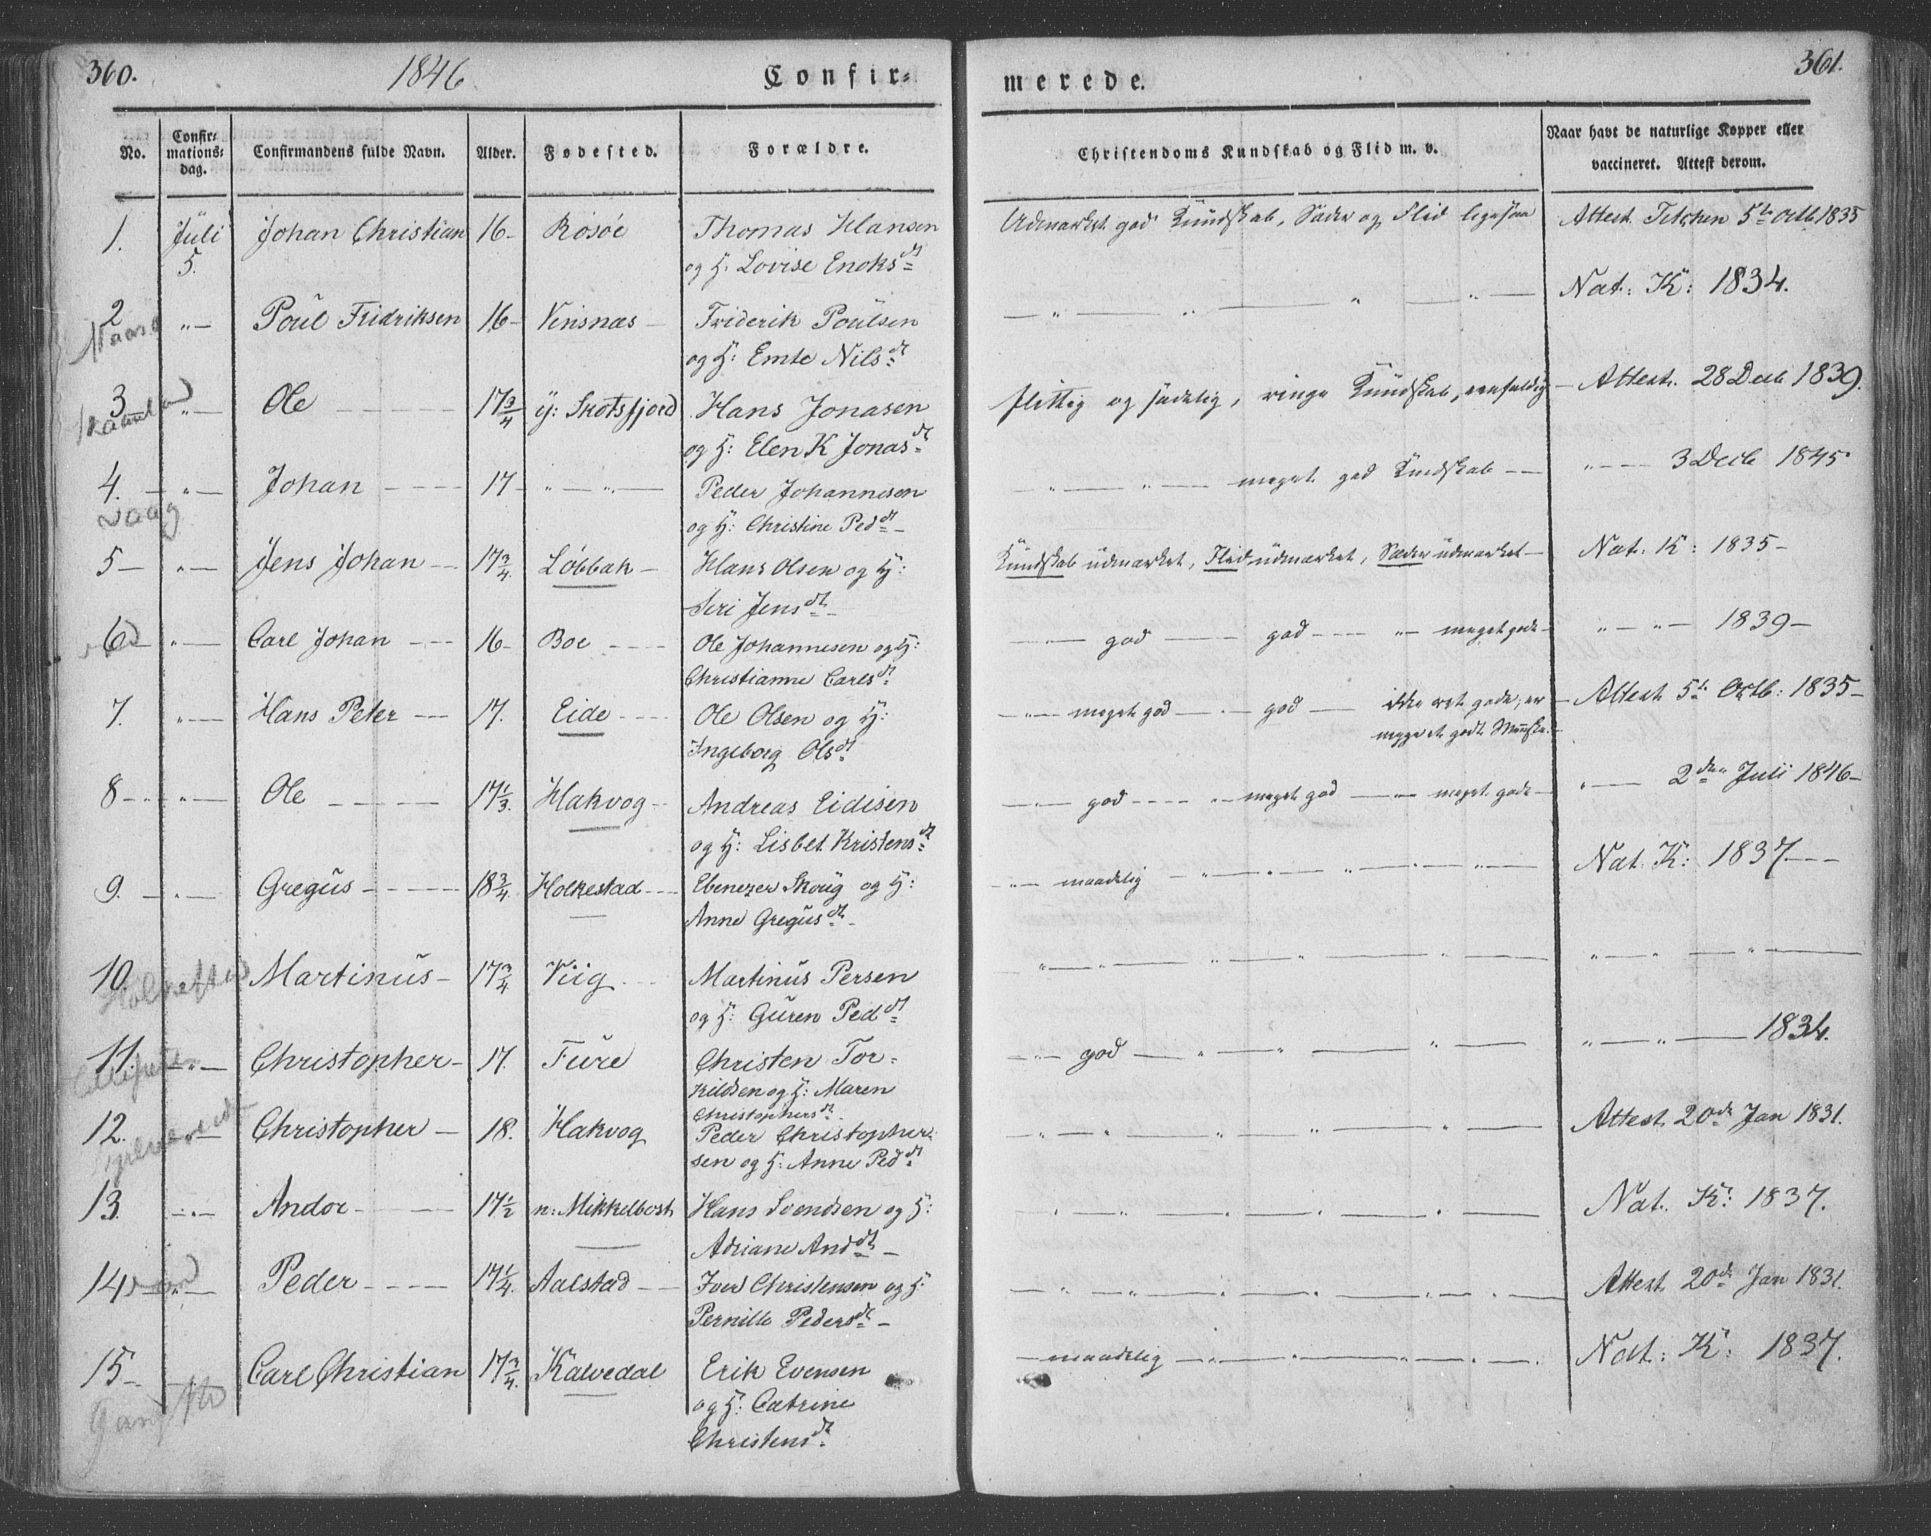 360.
1846
Confir-
merede.
361.
No.
Confir-
mations-
dag.
Confirmandens fulde Navn.
Alder.
Fødested.
Forældre.
Christendoms Kundskab og Flid m. v.
Naar havt de naturlige Kopper eller
vaccineret. Attest derom.
1. Juli 5. Johan Christian 16- Rosöe Thomas Hansen
og H: Lovise Enoksdt
Udmærket god Kundskab, Sæder og Flid ligesaa
Attest. Tetschen 5te Octb. 1835
2 " — Poul Fridriksen 16- Vinsnæs — Friderik Poulsen
og H: Emte Nilsdt
— " — " — " — " —
Nat: K: 1834.
3 " — Ole — 17 3/4 y: Skotsfjord Hans Jonasen
og H: Elen K Jonasdt
flittig og sædelig, ringe Kundskab, eenfoldig
Attest. 28 Decb 1839.
4. — " — Johan — 17 — " — " — Peder Johannesen
og H: Christine Peddt —
Vaag
— " — " — meget god Kundskab —
" — 3 Decb 1845
5 — " — Jens Johan — 17 3/4. Löbbak — Hans Olsen og H:
Siri Jensdt —
Kundskab udmærket, Flid udmærket, Sæder udmærket —
Nat: K: 1835 —
6 " — Carl Johan — 16- Boe — Ole Johannesen og H:
Christianne Carlsdt
— " — god — god — " — meget gode —
" — " — 1839 —
7. " — Hans Peter — 17. Eide — Ole Olsen og H:
Ingeborg Olsdt
— " — meget god — god — ikke ret gode, er
Attest 5te Octb: 1835 —
8 — " — Ole — 17 1/3. Hakvog — Andreas Eidisen
og H: Lisbet Kristensdt
— " — god — " — meget god — " — meget gode —
" — 2den Juli 1846 —
9. — " — Gregus — 18 3/4. Holkestad — Ebenezer Skoug og H:
Anne Gregusdt —
— " — maadelig — " — " — " — " —
Nat. K: 1837. —
10. Martinus — 17 3/4 Viig — Martinus Persen
og H: Guren Peddt
" — " — " — " — " — " —
" — " — " —
11. — " — Christopher — 17. Fure Christen Tor-
kildsen og H: Maren
Christophersdt
— " — god — " — " — " — " —
" — " — 1834.
12. — Christopher — 18. Hakvog Peder Christopher-
sen og H: Anne Peddt
— " — " — " — " — " — " —
Attest. 20de Jan 1831.
13. — " — Andor — 17 1/2 n: Mikkelbost Hans Svendsen og H:
Adriane Anddt —
" — " — " — " — " —
Nat. K: 1837.
14 — " — Peder — 17 1/4. Aalstad — Iver Christensen og H:
Pernille Pedersdt —
" — " — " — " — " — " —
Attest 20de Jan 1831.
15 — Carl Christian 17 3/4. Kalvedal Erik Evensen
og H: Catrine
Christensdt
— maadelig — " — " — " — " —
Nat: K: 1837.